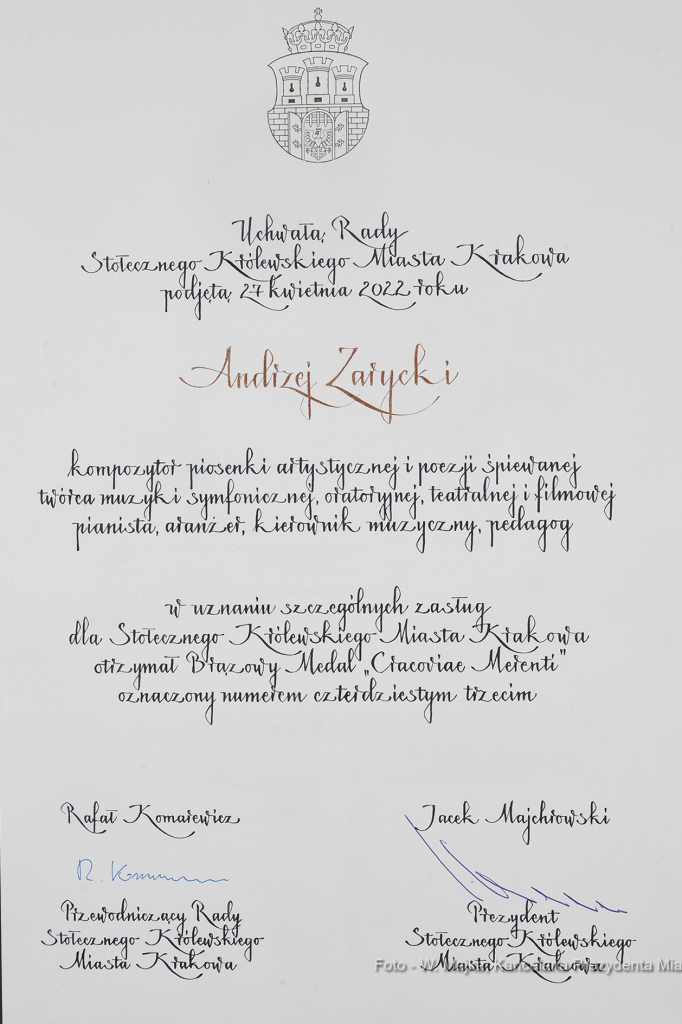 Uchwałą Rady
Stołecznego Królewskiego Miasta Krakowa
podjętą 27 kwietnia 2022 roku
Andrzej Zarycki
kompozytor piosenki artystycznej i poezji śpiewanej
twórca muzyki symfonicznej, oratoryjnej, teatralnej i filmowej
pianista, aranżer, kierownik muzyczny, pedagog
w uznaniu szczególnych zasług
dla Stołecznego Królewskiego Miasta Krakowa
otrzymał Brązowy Medal „Cracoviae Merenti”
oznaczony numerem czterdziestym trzecim
Rafał Komarewicz
R. Kom
Przewodniczący Rady
Stołecznego Królewskiego
Miasta Krakowa
Jacek Majchrowski
Prezydent
Stołecznego Królewskiego
Miasta Krakowa
Foto - W. Majka, Kancelaria Prezydenta Mia